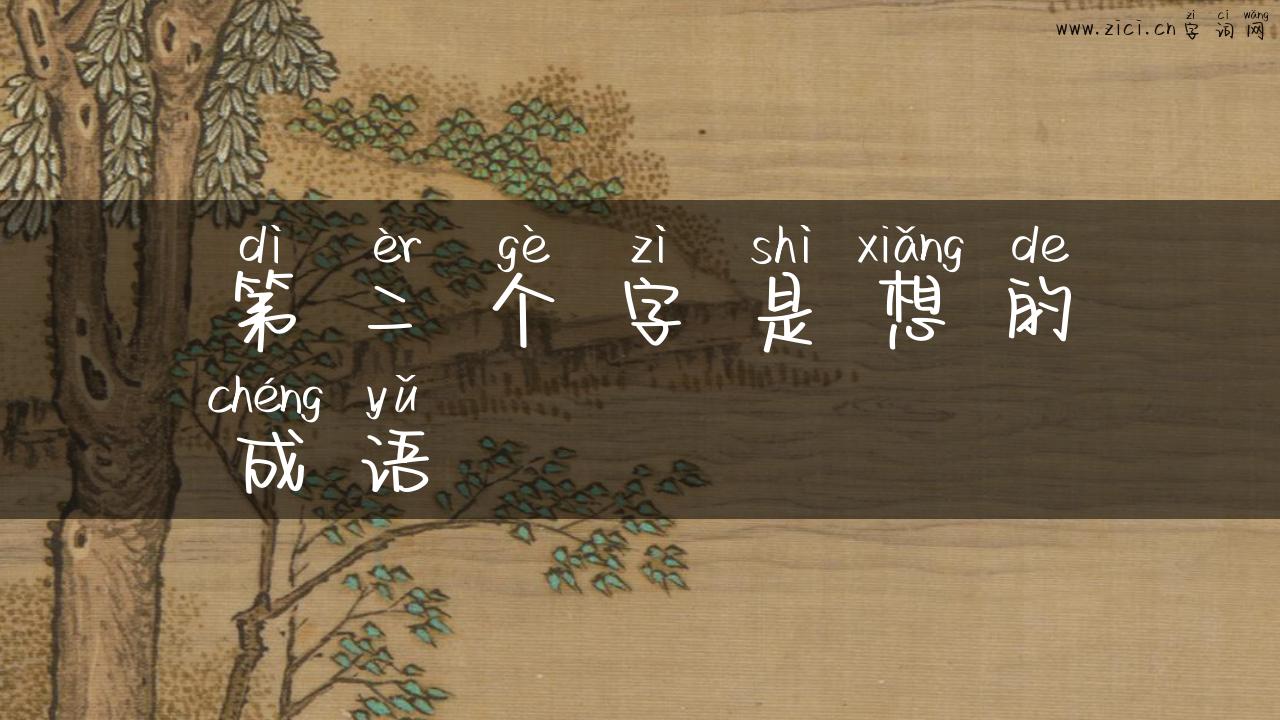 zì cí wǎng
www.zici.cn 字词网
dì èr gè zì shì xiǎng de
第二个字是想的
chéng yǔ
成语